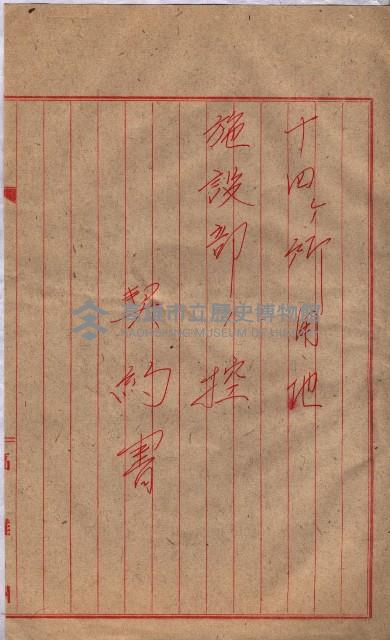 十四ケ所用地
施設部ノ控
契約書
高雄市立歷史博物館
KAOHSIUNG MUSEUM OF HISTORY
高雄州